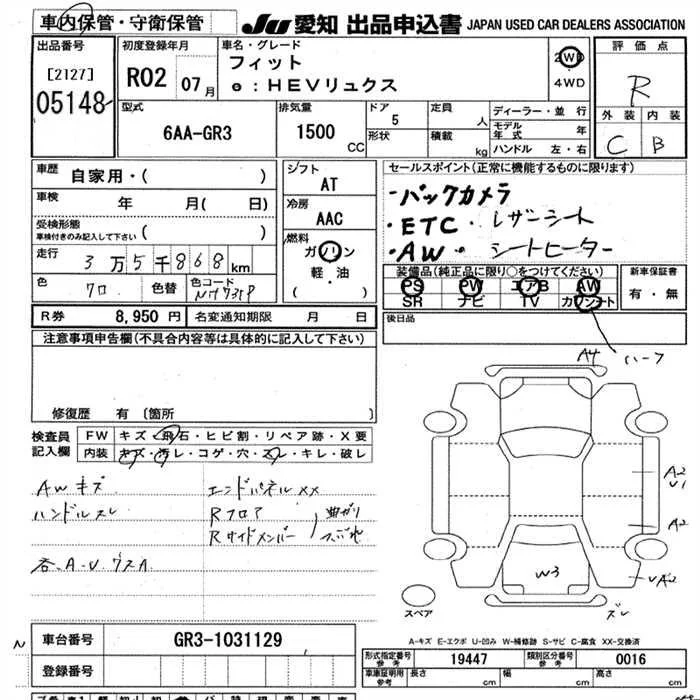 車内保管・守衛保管
JU 愛知 出品申込書 JAPAN USED CAR DEALERS ASSOCIATION
出品番号
[2127]
05148
初度登録年月
R02 07月
車名・グレード
フィット
e:HEVリュクス
2WD
4WD
評価点
R
外装 内装
C B
型式
6AA-GR3
排気量
1500 CC
ドア 5
形状
定員 人
積載 kg
ディーラー・並行
モデル年式 年
ハンドル 左・右
車歴 自家用・( )
車検 年 月( 日)
受検形態
車検付きのみ記入して下さい ( )
走行 3万5千868km
色 クロ 色替 色コード NH731P
シフト
AT
冷房
AAC
燃料
ガソリン
軽・油
( )
R券 8,950円 名変通知期限 月 日
セールスポイント(正常に機能するものに限ります)
・バックカメラ
・ETC・レザーシート
・AW・シートヒーター
装備品(純正品に限り○をつけてください)
PS PW エアB AW
SR ナビ TV カワシート
新車保証書
有・無
後日品
ハーフ
注意事項申告欄(不具合内容等は具体的に記入して下さい)
修復歴 有〔箇所
検査員記入欄
FW キズ・飛石・ヒビ割・リペア跡・X要
内装 キズ・汚レ・コゲ・穴・スレ・キレ・破レ
AWキズ
ハンドルスレ
各、A・U、ウスA
エンドパネルXX
Rフロア
Rサイドメンバー
曲がり
つぶれ
A4
A2
U1
A2
UA2
W3
ズレ
スペア
A-キズ E-エクボ U-凹み W-補修跡 S-サビ C-腐食 XX-交換済
N
車台番号 GR3-1031129
登録番号
形式指定番号 参考 19447 類別区分番号 参考 0016
車庫証明用 参考 長さ cm 幅 cm 高さ cm